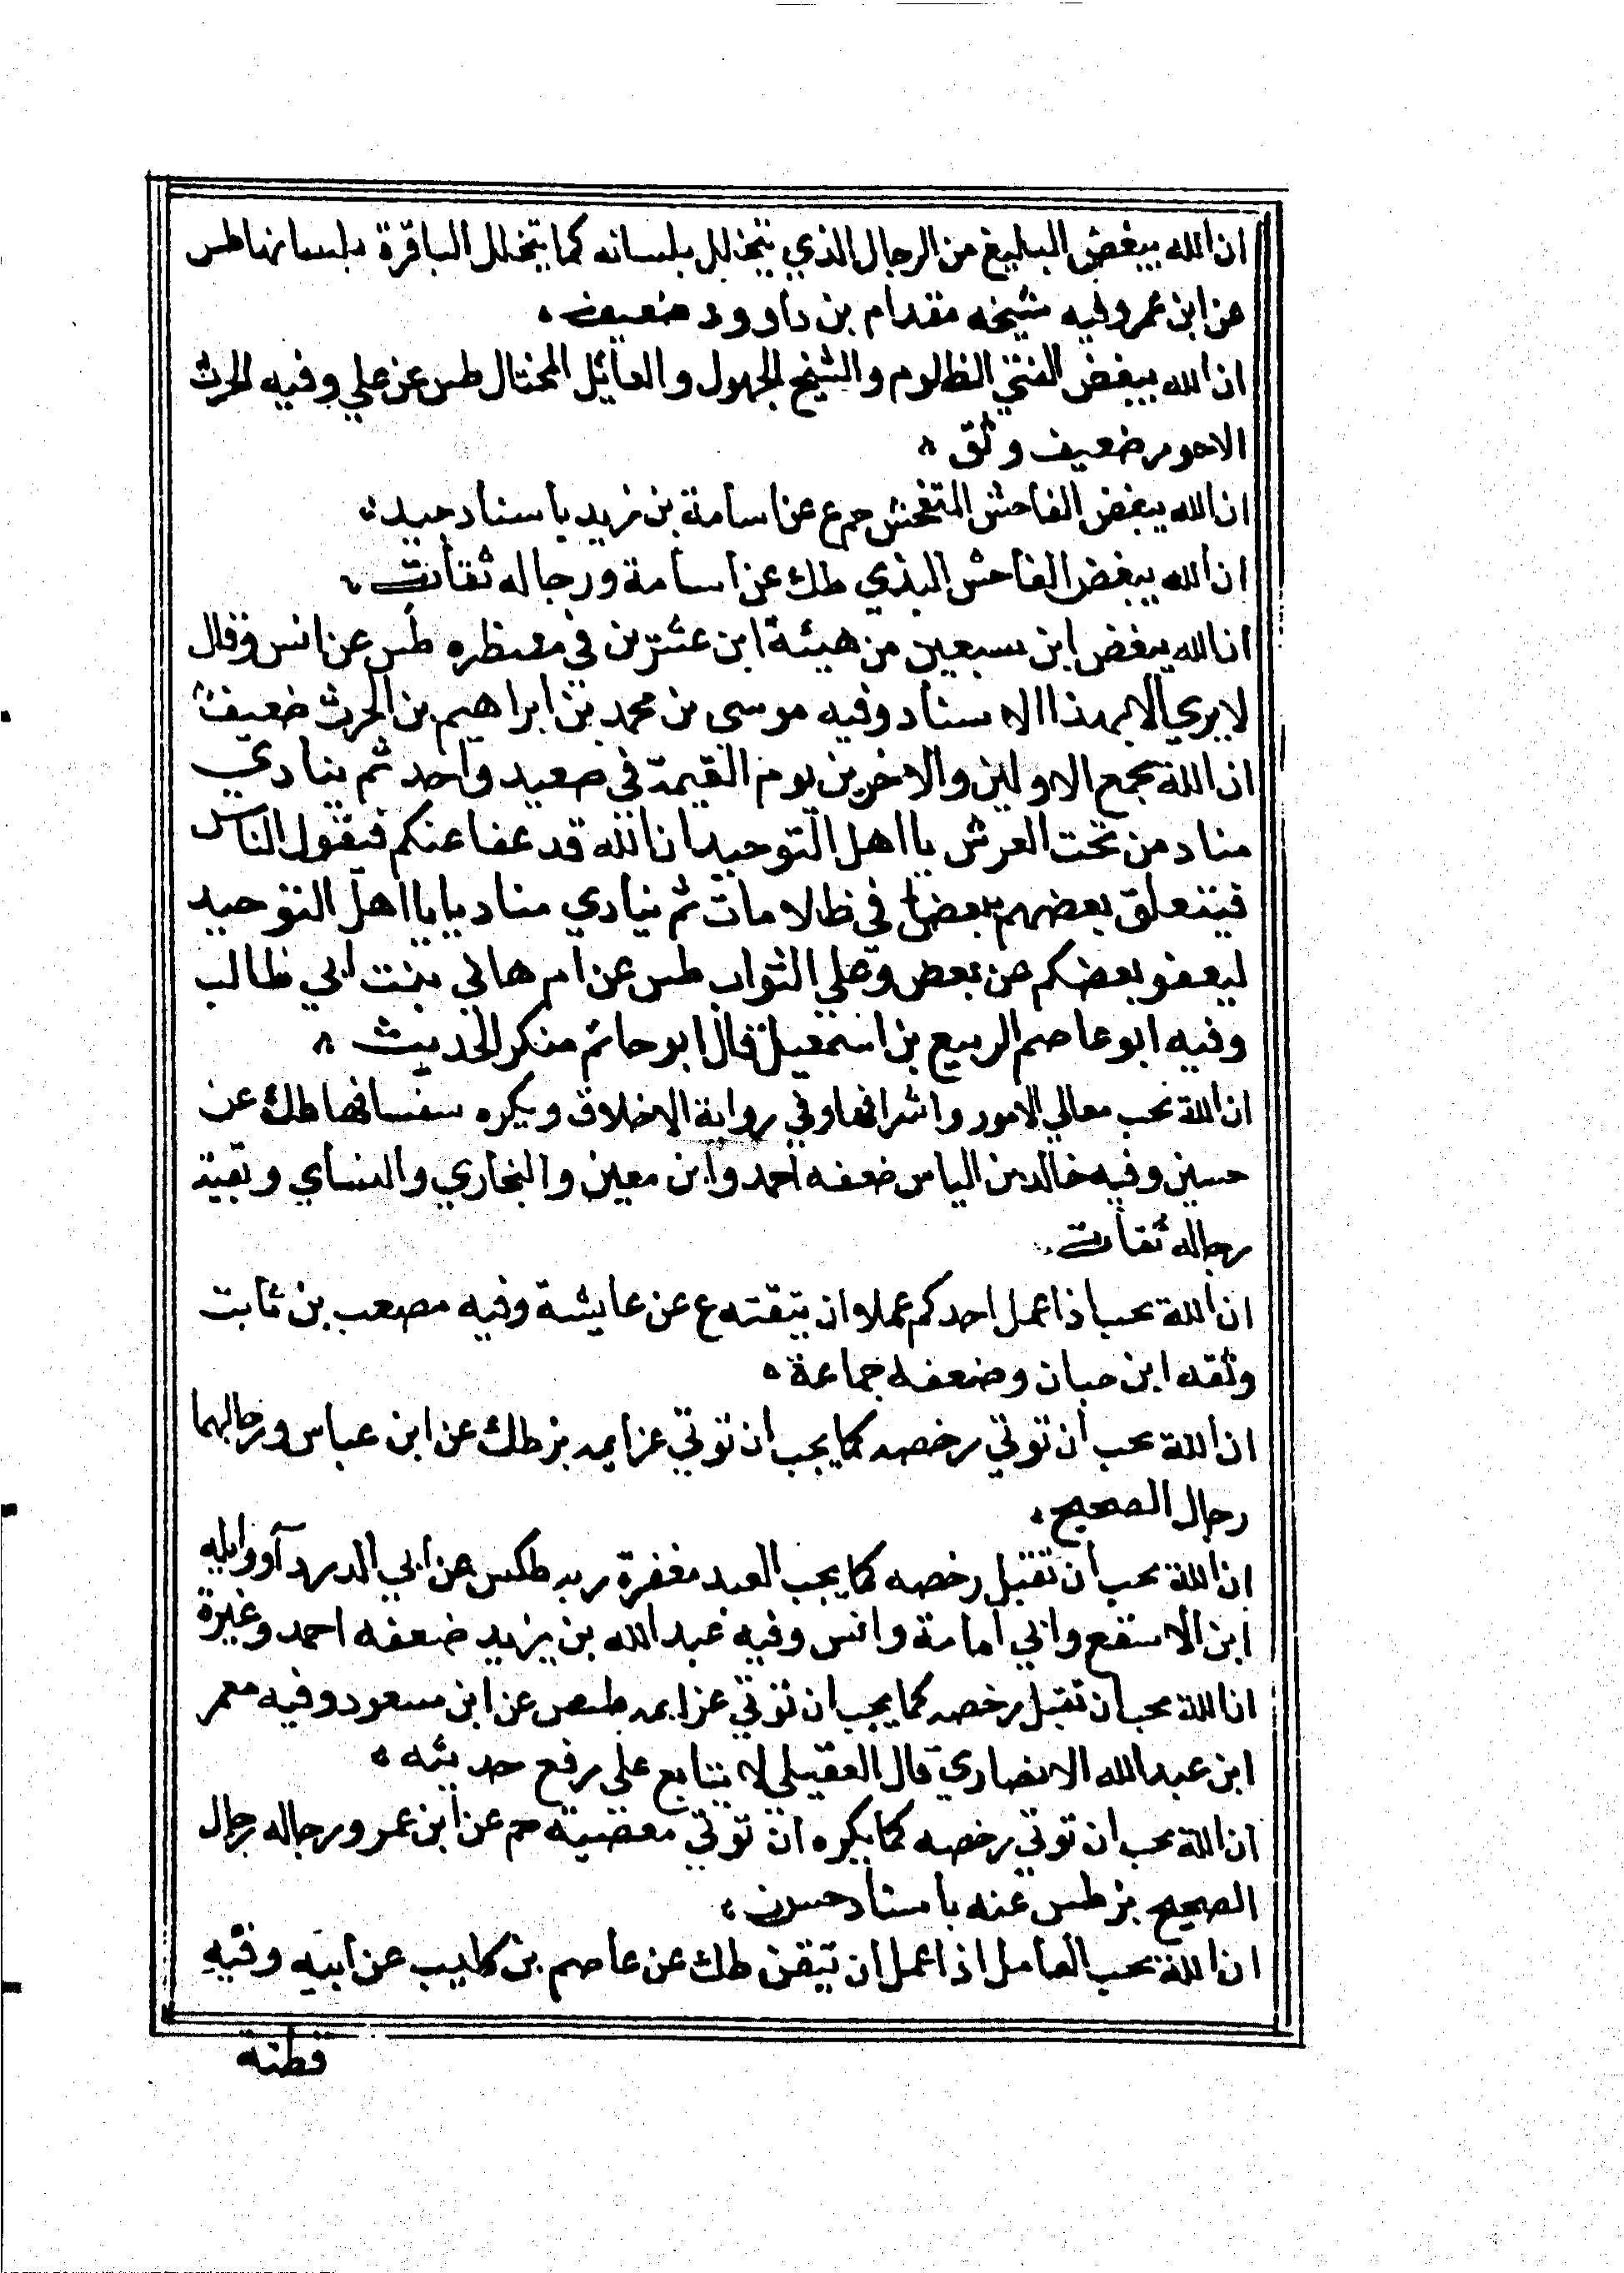 ان الله يبغض البليغ من الرجال الذي يتخلل بلسانه كما يتخلل الباقرة بلسانها طس
عن ابن عمر وفيه شيخه مقدام بن داوود ضعيف
ان الله يبغض الغني الظلوم والشيخ الجهول والعائل المختال طس عن علي وفيه الحرث
الاعور ضعيف وثق
ان الله يبغض الفاحش المتفحش حم ع عن اسامة بن زيد باسناد جيد
ان الله يبغض الفاحش البذي طك عن اسامة ورجاله ثقات
ان الله يبغض ابن سبعين من هيئة ابن عشرين في منظره طس عن انس وقال
لا يروي الا بهذا الاسناد وفيه موسى بن محمد بن ابراهيم بن الحرث ضعيف
ان الله يجمع الاولين والاخرين يوم القيمة في صعيد واحد ثم ينادي
مناد من تحت العرش يا اهل التوحيد ان الله قد عفا عنكم فيقول الناس
فيتعلق بعضهم ببعض في ظلامات ثم ينادي مناد يا يا اهل التوحيد
ليعفو بعضكم عن بعض وعلي الثواب طس عن ام هاني بنت ابي طالب
وفيه ابو عاصم الربيع بن اسمعيل قال ابو حاتم منكر الحديث
ان الله يحب معالي الامور واشرافها وفي رواية الاخلاق ويكره سفسافها طك عن
حسين وفيه خالد بن الياس ضعفه احمد وابن معين والبخاري والنساي وبقية
رجاله ثقات
ان الله يحب اذا عمل احدكم عملا ان يتقنه ع عن عايشة وفيه مصعب بن ثابت
وثقه ابن حبان وضعفه جماعة
ان الله يحب ان توتي رخصه كما يحب ان توتي عزايمه بز طك عن ابن عباس ورجالهما
رجال الصحيح
ان الله يحب ان تقبل رخصه كما يحب العبد مغفرة ربه طكس عن ابي الدرداء وواثلة
ابن الاسقع وابي امامة وانس وفيه عبد الله بن يزيد ضعفه احمد وغيره
ان الله يحب ان تقبل رخصه كما يحب ان توتي عزايمه طس عن ابن مسعود وفيه معمر
ابن عبد الله الانصاري قال العقيلي لا يتابع علي رفع حديثه
ان الله يحب ان توتي رخصه كما يكره ان توتي معصيته حم عن ابن عمر ورجاله رجال
الصحيح بز طس عنه باسناد حسن
ان الله يحب العامل اذا عمل ان يتقن طك عن عاصم بن كليب عن ابيه وفيه
قطنة